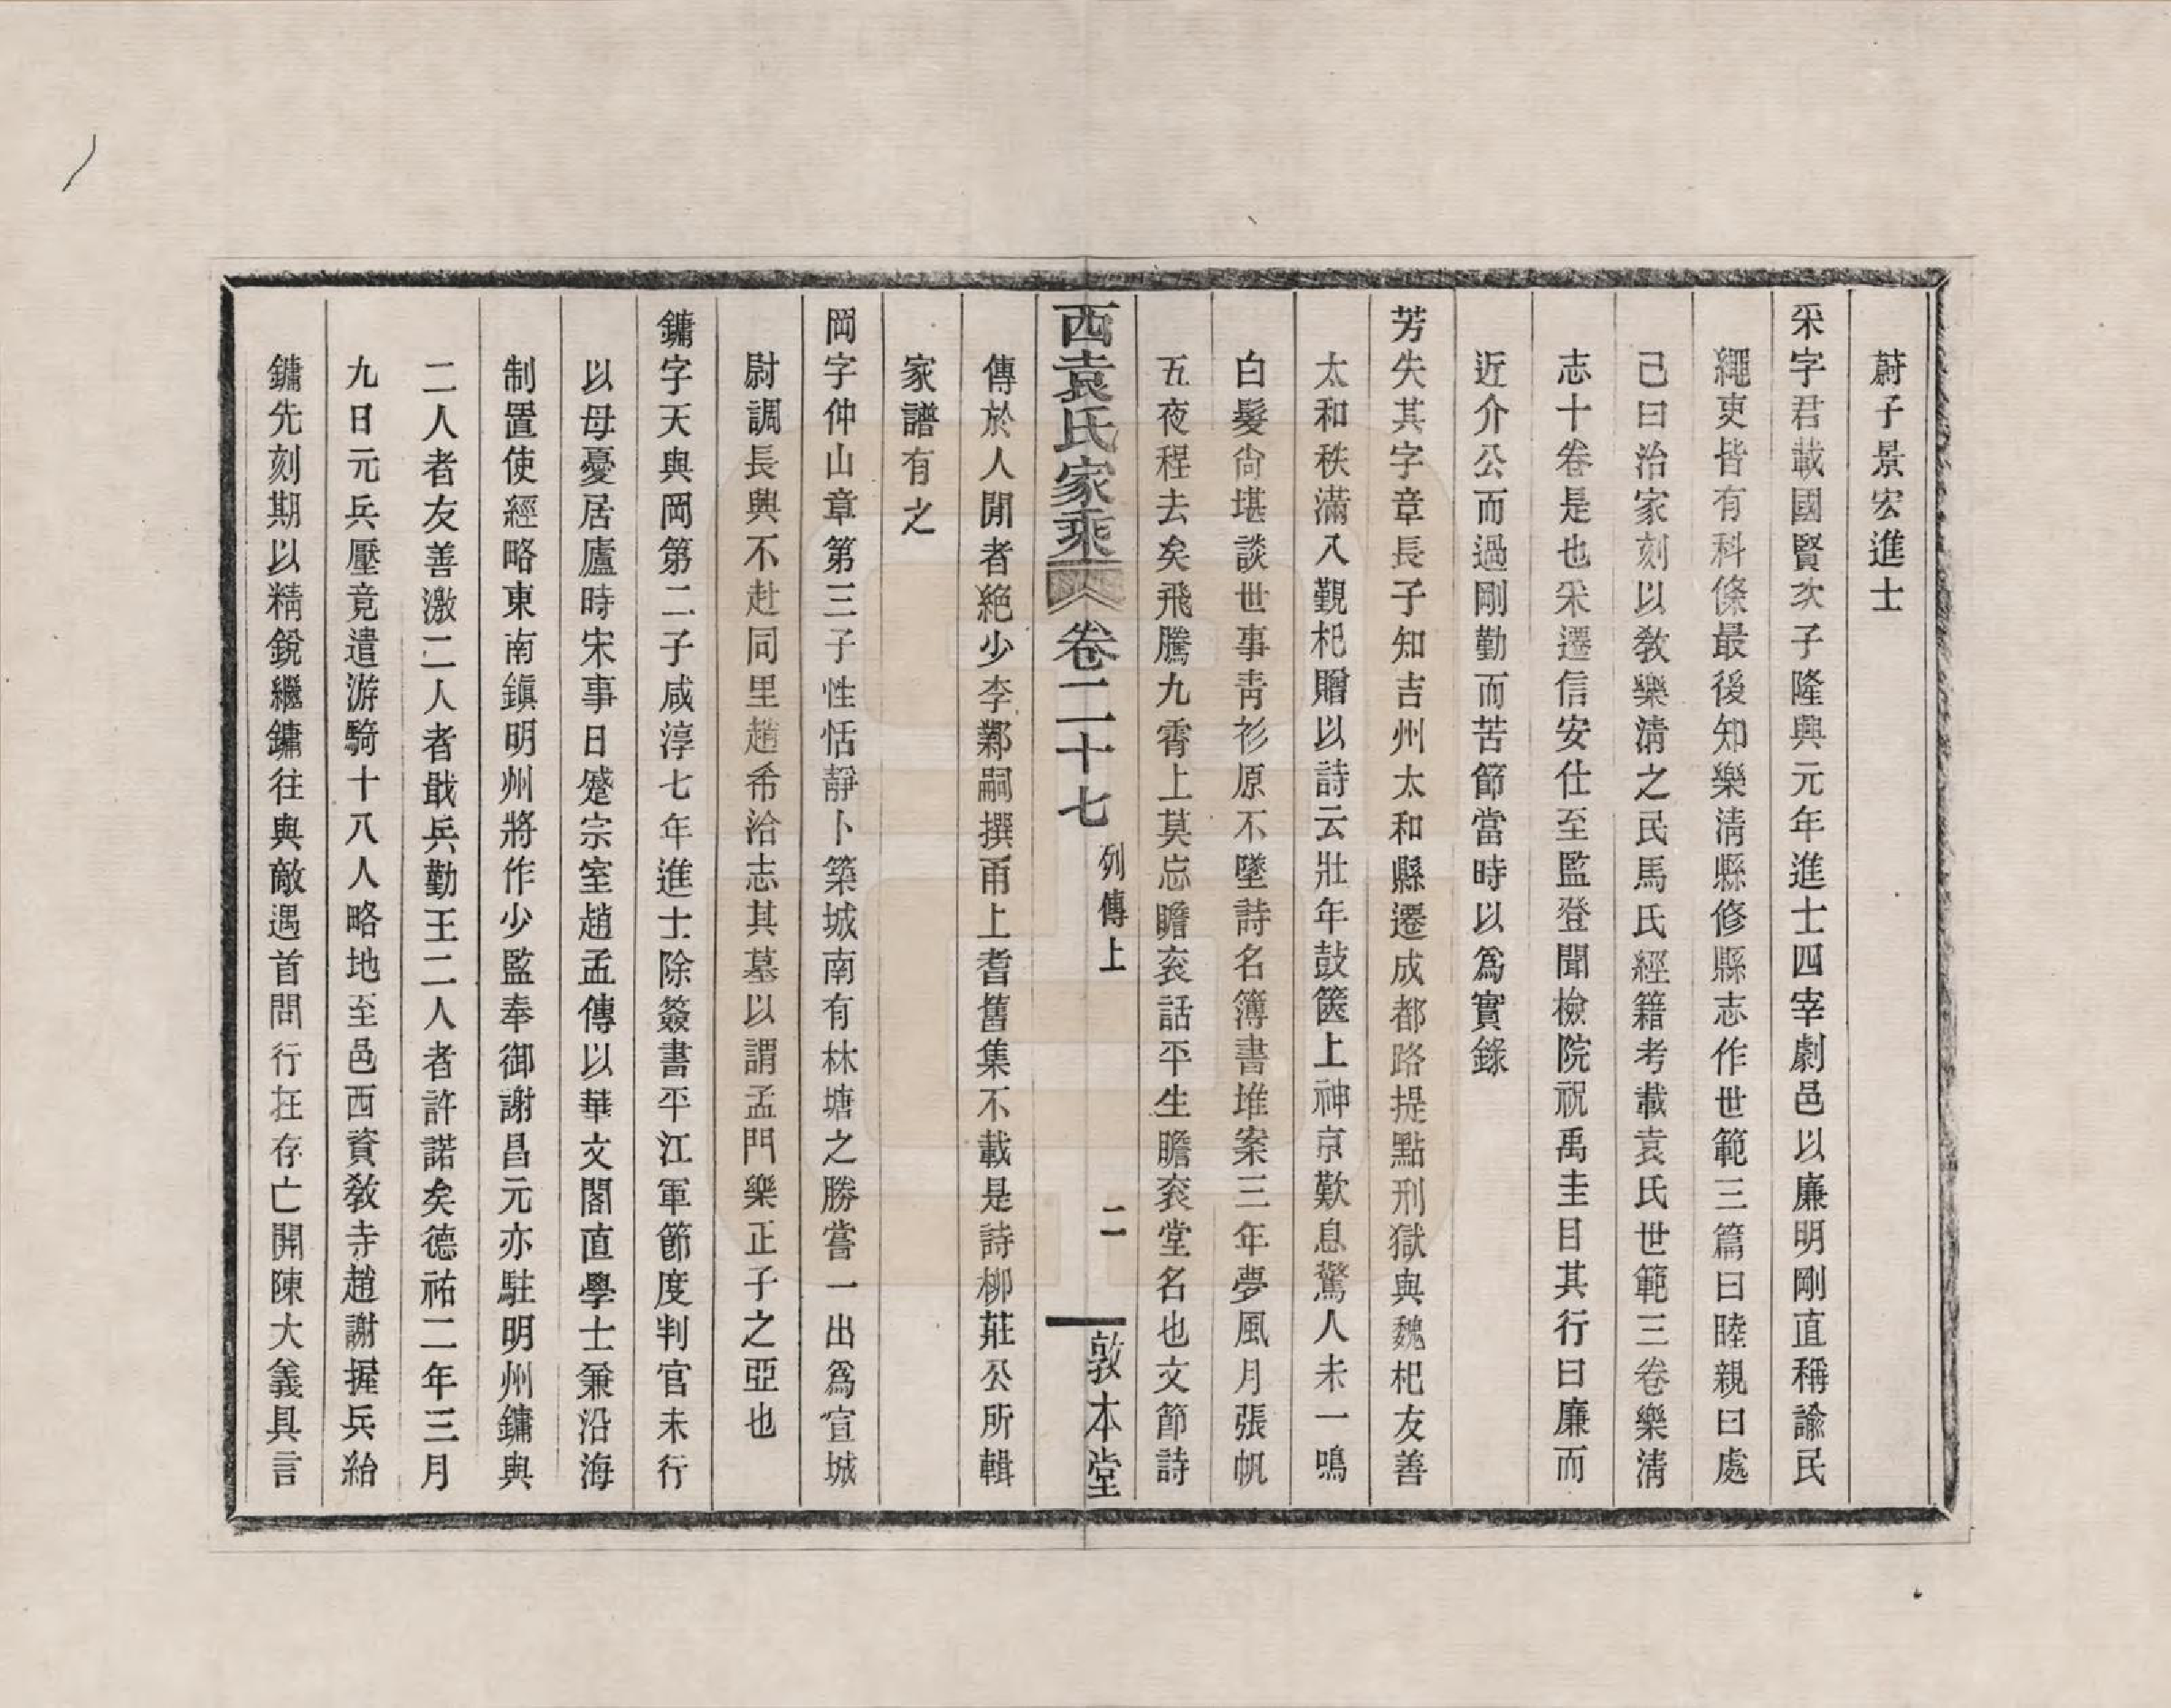 蔚子景宏進士
采字君載國賢次子隆興元年進士四宰劇邑以廉明剛直稱諭民
繩吏皆有科條最後知樂淸縣修縣志作世範三篇曰睦親曰處
己曰治家刻以敎樂淸之民馬氏經籍考載袁氏世範三卷樂淸
志十卷是也采遷信安仕至監登聞檢院祝禹圭目其行曰廉而
近介公而過剛勤而苦節當時以爲實錄
芳失其字章長子知吉州太和縣遷成都路提點刑獄與魏杞友善
太和秩滿入觀杞贈以詩云壯年鼓篋上神京歎息驚人未一鳴
白髮尙堪談世事靑衫原不墜詩名簿書堆案三年夢風月張帆
五夜程去矣飛騰九霄上莫忘瞻袞話平生瞻袞堂名也文節詩
西袁氏家乘 卷二十七 列傳上 二 敦本堂
傳於人閒者絕少李鄴嗣撰甬上耆舊集不載是詩柳莊公所輯
家譜有之
岡字仲山章第三子性恬靜卜築城南有林塘之勝嘗一出爲宣城
尉調長興不赴同里趙希洽志其墓以謂孟門樂正子之亞也
鏞字天與岡第二子咸淳七年進士除簽書平江軍節度判官未行
以母憂居廬時宋事日蹙宗室趙孟傳以華文閣直學士兼沿海
制置使經略東南鎭明州將作少監奉御謝昌元亦駐明州鏞與
二人者友善激二人者戢兵勤王二人者許諾矣德祐二年三月
九日元兵壓竟遣游騎十八人略地至邑西資敎寺趙謝握兵紿
鏞先刻期以精銳繼鏞往與敵遇首問行在存亡開陳大義具言